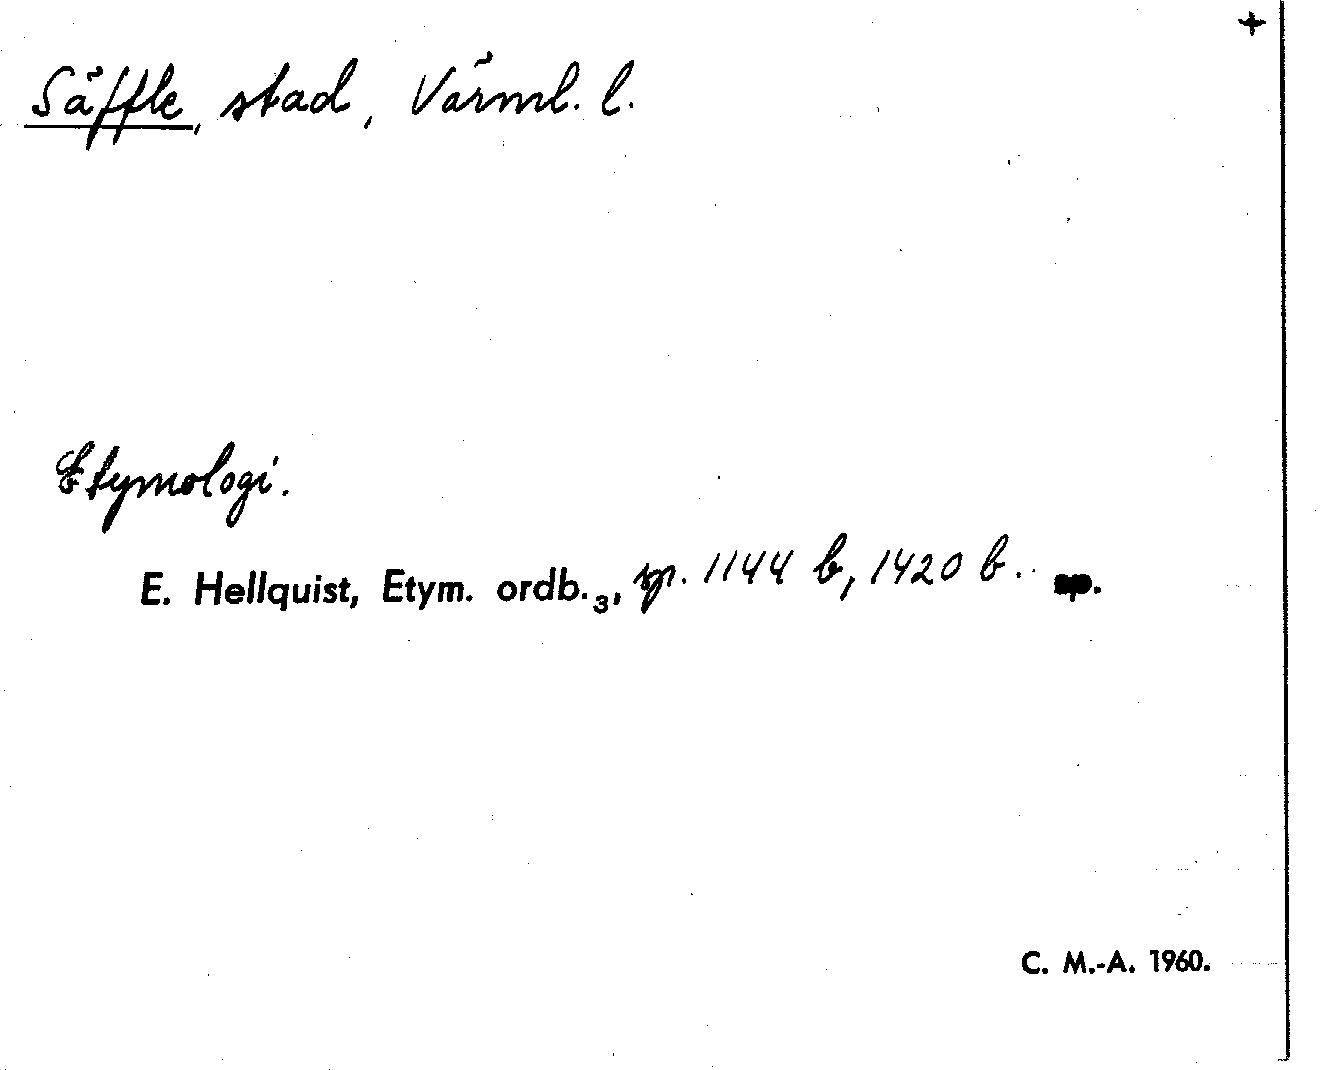 +
Säffle, stad, Värml. l.
Etymologi.
E. Hellquist, Etym. ordb.₃, sp. 1144 b, 1420 b. sp.
C. M.-A. 1960.